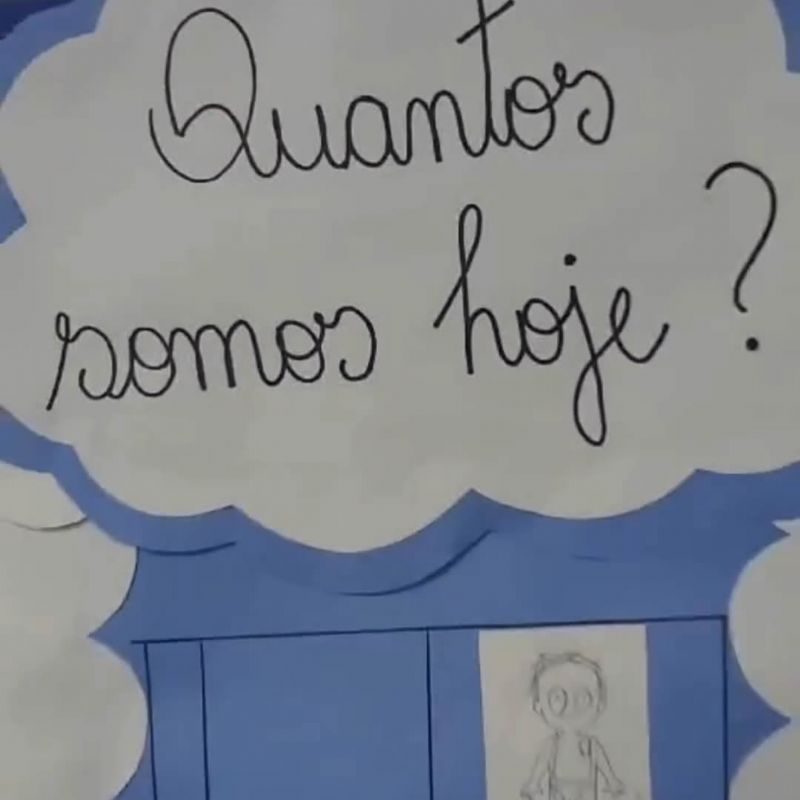 Quantos
somos hoje?